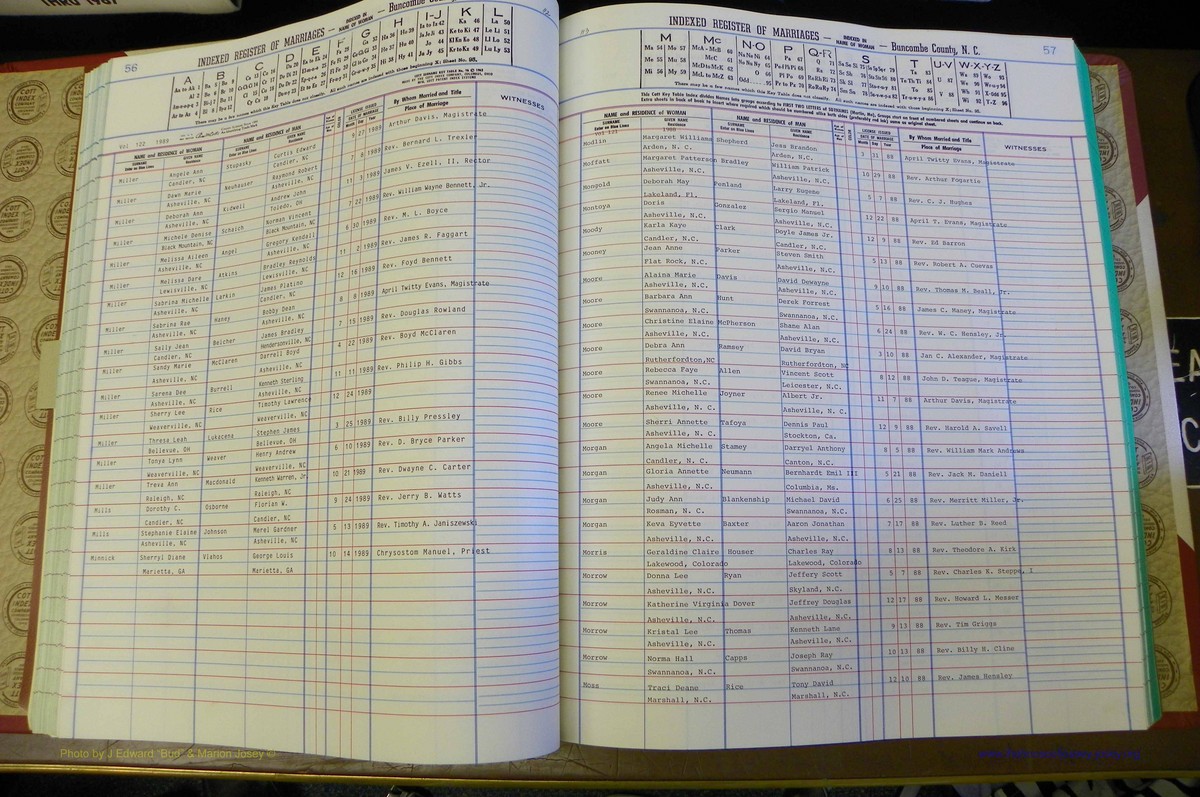 THRU 1987
56
INDEXED REGISTER OF MARRIAGES — INDEXED IN NAME OF WOMAN
A B C D E F G H I-J K L
Ka 46 La 50
Ke to Ki 47 Le Li 51
Kl Kn Ko 48 Ll Lo 52
Kr to Kz 49 Lu Ly 53
Vol 122 1989
NAME and RESIDENCE OF WOMAN
NAME and RESIDENCE OF MAN
LICENSE ISSUED
DATE OF MARRIAGE
Month Day Year
By Whom Married and Title
Place of Marriage
WITNESSES
Miller Angela Ann Stupesky Curtis Edward 9 27 1989 Arthur Davis, Magistrate
Candler, NC Candler, NC
Miller Dawn Marie Neuhauser Raymond Robert 7 8 1989 Rev. Bernard L. Trexler
Asheville, NC Asheville, NC
Miller Deborah Ann Kidwell Andrew John 11 3 1989 James V. Ezell, II, Rector
Asheville, NC Toledo, OH
Miller Michele Denise Schaich Norman Vincent 7 22 1989 Rev. William Wayne Bennett, Jr.
Black Mountain, NC Black Mountain, NC
Miller Melissa Aileen Angel Gregory Kendall 6 30 1989 Rev. M. L. Boyce
Asheville, NC Asheville, NC
Miller Melissa Dare Atkins Bradley Reynolds 11 2 1989 Rev. James R. Faggart
Lewisville, NC Lewisville, NC
Miller Sabrina Michelle Larkin James Platino 12 16 1989 Rev. Foyd Bennett
Asheville, NC Candler, NC
Miller Sabrina Rae Haney Bobby Dean 8 8 1989 April Twitty Evans, Magistrate
Asheville, NC Asheville, NC
Miller Sally Jean Belcher James Bradley 2 15 1989 Rev. Douglas Rowland
Candler, NC Hendersonville, NC
Miller Sandy Marie McClaren Darrell Boyd 4 22 1989 Rev. Boyd McClaren
Asheville, NC Asheville, NC
Miller Sarena Dee Burrell Kenneth Sterling 11 11 1989 Rev. Philip H. Gibbs
Asheville, NC Asheville, NC
Miller Sherry Lee Rice Timothy Lawrence 12 24 1989
Weaverville, NC Weaverville, NC
Miller Thresa Leah Lukacena Stephen James 3 25 1989 Rev. Billy Pressley
Bellevue, OH Bellevue, OH
Miller Tonya Lynn Weaver Henry Andrew 6 10 1989 Rev. D. Bryce Parker
Weaverville, NC Weaverville, NC
Miller Treva Ann Macdonald Kenneth Warren, Jr. 10 21 1989 Rev. Dwayne C. Carter
Raleigh, NC Raleigh, NC
Mills Dorothy C. Osborne Florian W. 9 24 1989 Rev. Jerry B. Watts
Candler, NC Candler, NC
Mills Stephanie Elaine Johnson Merel Gardner 5 13 1989 Rev. Timothy A. Janiszewski
Asheville, NC Asheville, NC
Minnick Sherryl Diane Vlahos George Louis 10 14 1989 Chrysostom Manuel, Priest
Marietta, GA Marietta, GA
INDEXED REGISTER OF MARRIAGES — INDEXED IN NAME OF WOMAN — Buncombe County, N. C. 57
M Mc N-O P Q-R S T U-V W-X-Y-Z
NAME and RESIDENCE OF WOMAN
NAME and RESIDENCE OF MAN
LICENSE ISSUED
DATE OF MARRIAGE
Month Day Year
By Whom Married and Title
Place of Marriage
WITNESSES
Vol 121 1988
Modlin Margaret Williams Shepherd Jess Brandon 3 31 88 April Twitty Evans, Magistrate
Arden, N. C. Arden, N.C.
Moffatt Margaret Patterson Bradley William Patrick 10 29 88 Rev. Arthur Fogartie
Asheville, N.C. Asheville, N.C.
Mongold Deborah May Penland Larry Eugene 5 7 88 Rev. C. J. Hughes
Lakeland, Fl. Lakeland, Fl.
Montoya Doris Gonzalez Sergio Manuel 12 22 88 April T. Evans, Magistrate
Asheville, N.C. Asheville, N.C.
Moody Karla Kaye Clark Doyle James Jr. 12 9 88 Rev. Ed Barron
Candler, N.C. Candler, N.C.
Mooney Jean Anne Parker Steven Smith 5 13 88 Rev. Robert A. Cuevas
Flat Rock, N.C. Asheville, N.C.
Moore Alaina Marie Davis David Dewayne 9 10 88 Rev. Thomas M. Beall, Jr.
Asheville, N.C. Asheville, N.C.
Moore Barbara Ann Hunt Derek Forrest 5 16 88 James C. Haney, Magistrate
Swannanoa, N.C. Swannanoa, N.C.
Moore Christine Elaine McPherson Shane Alan 6 24 88 Rev. W. C. Hensley, Jr.
Asheville, N.C. Asheville, N.C.
Moore Debra Ann Ramsey David Bryan 3 10 88 Jan C. Alexander, Magistrate
Rutherfordton,NC Rutherfordton, NC
Moore Rebecca Faye Allen Vincent Scott 8 12 88 John D. Teague, Magistrate
Swannanoa, N.C. Leicester, N.C.
Moore Renee Michelle Joyner Albert Jr. 11 7 88 Arthur Davis, Magistrate
Asheville, N.C. Asheville, N.C.
Moore Sherri Annette Tafoya Dennis Paul 12 9 88 Rev. Harold A. Savell
Asheville, N. C. Stockton, Ca.
Morgan Angela Michelle Stamey Darryel Anthony 8 5 88 Rev. William Mark Andrews
Candler, N. C. Canton, N.C.
Morgan Gloria Annette Neumann Bernhardt Emil III 5 21 88 Rev. Jack M. Daniell
Asheville, N.C. Columbia, Ms.
Morgan Judy Ann Blankenship Michael David 6 25 88 Rev. Merritt Miller, Jr.
Rosman, N. C. Swannanoa, N.C.
Morgan Keva Eyvette Baxter Aaron Jonathan 7 17 88 Rev. Luther B. Reed
Asheville, N.C. Asheville, N.C.
Morris Geraldine Claire Houser Charles Ray 8 13 88 Rev. Theodore A. Kirk
Lakewood, Colorado Lakewood, Colorado
Morrow Donna Lee Ryan Jeffery Scott 5 7 88 Rev. Charles K. Steppe, I
Asheville, N.C. Skyland, N.C.
Morrow Katherine Virginia Dover Jeffrey Douglas 12 17 88 Rev. Howard L. Messer
Asheville, N.C. Asheville, N.C.
Morrow Kristal Lee Thomas Kenneth Lane 9 13 88 Rev. Tim Griggs
Asheville, N.C. Asheville, N.C.
Morrow Norma Hall Capps Joseph Ray 10 13 88 Rev. Billy H. Cline
Swannanoa, N.C. Swannanoa, N.C.
Moss Traci Deane Rice Tony David 12 10 88 Rev. James Hensley
Marshall, N.C. Marshall, N.C.
Photo by J Edward "Bud" & Marion Josey ©